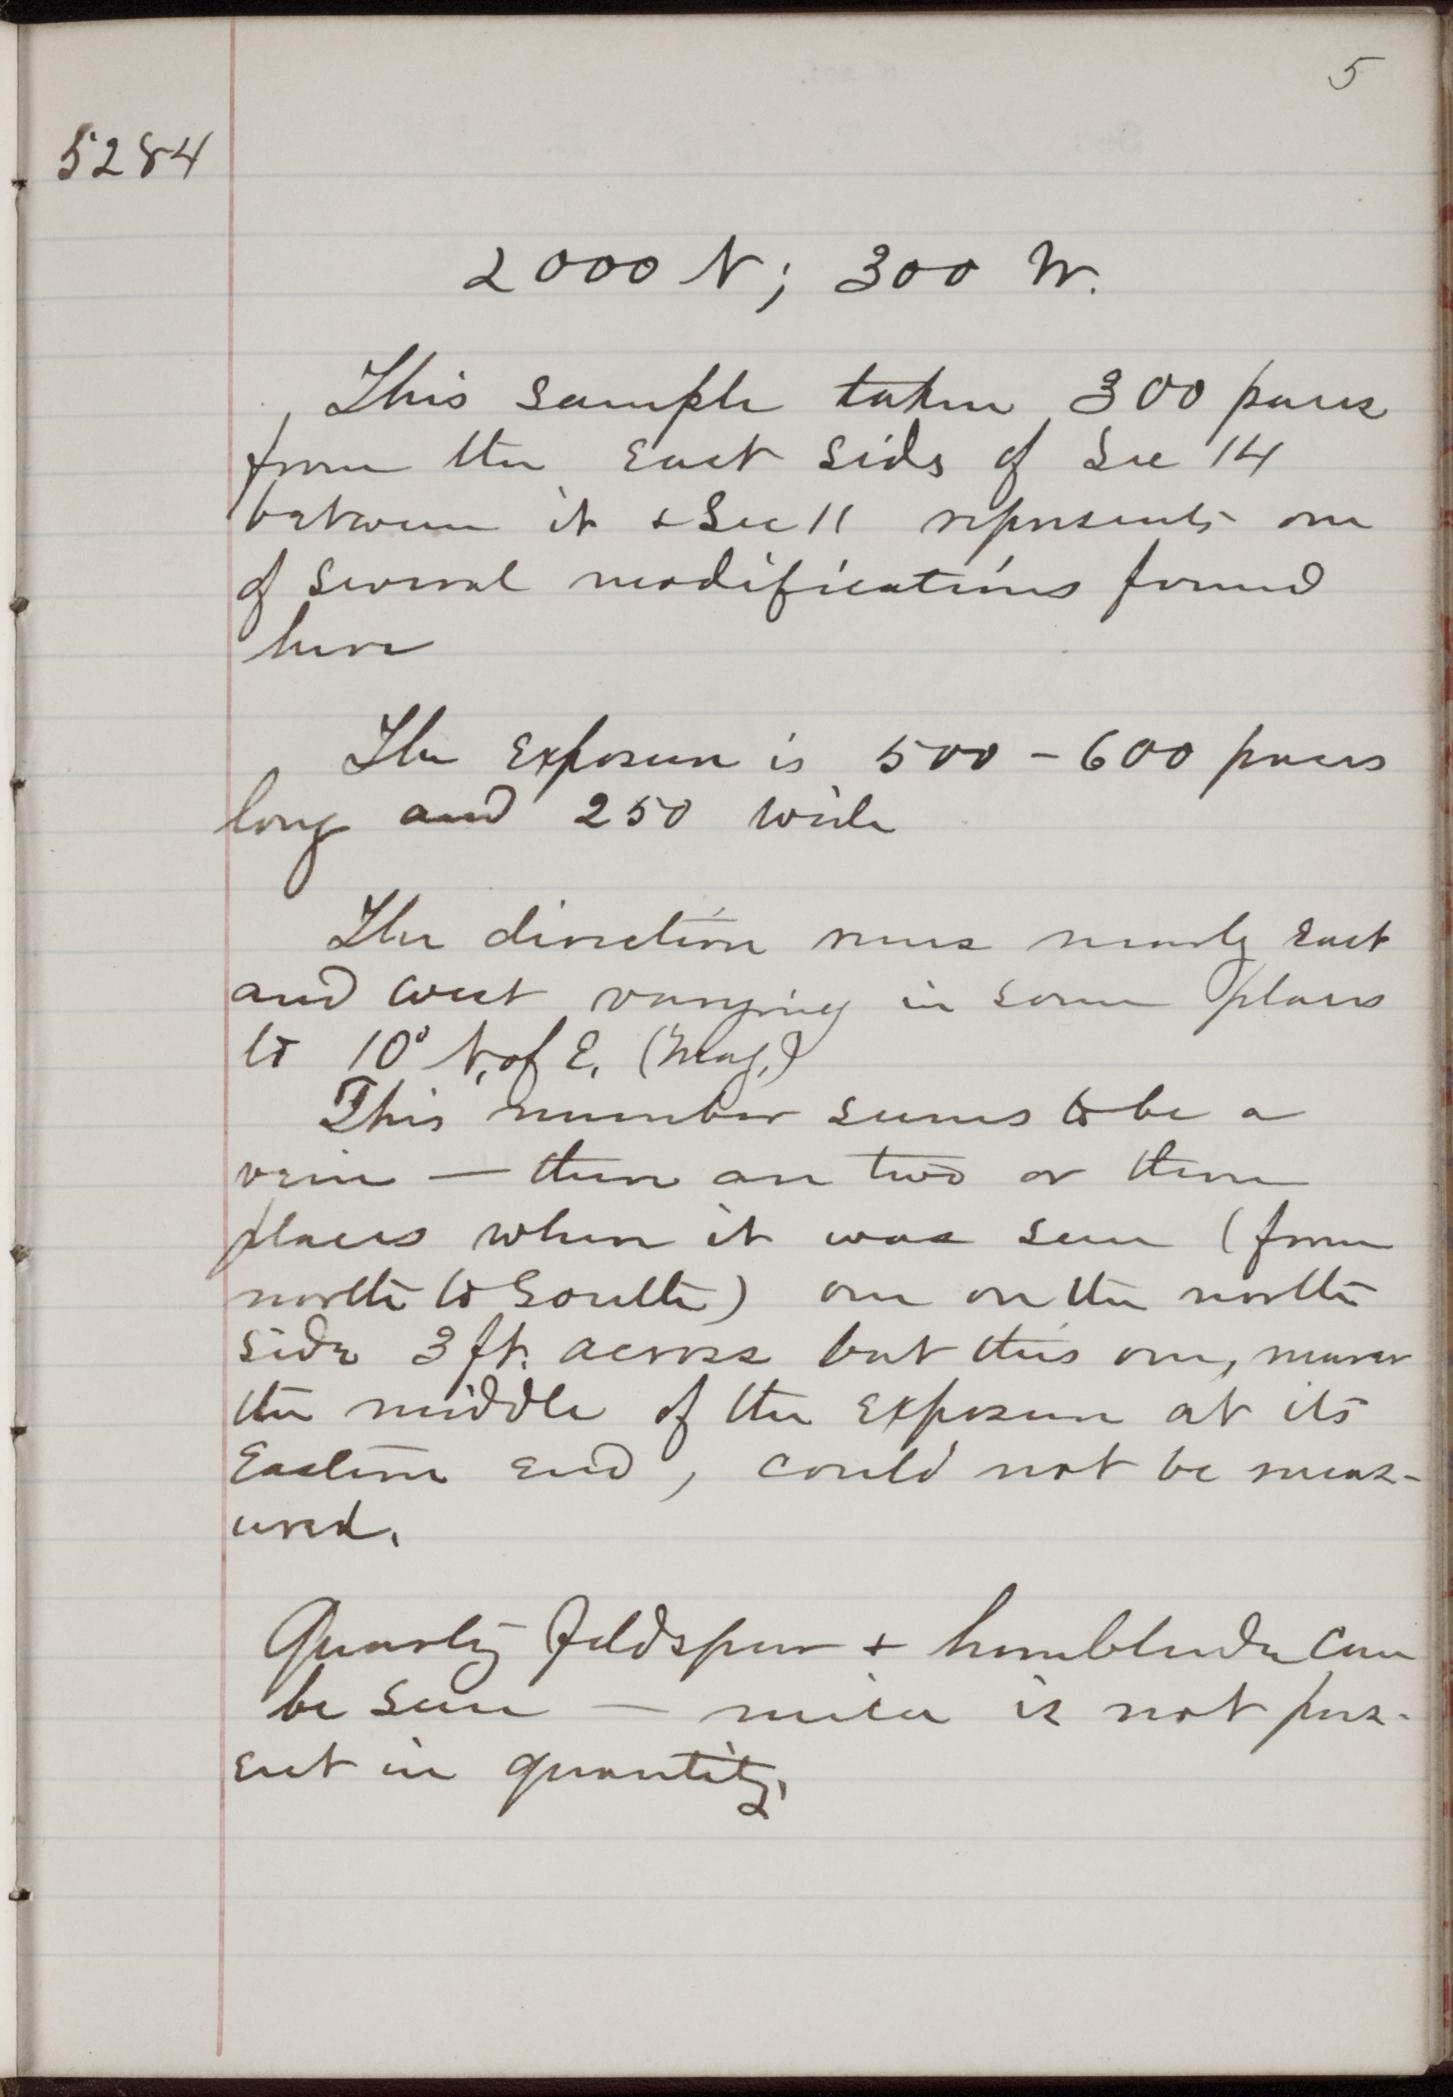 5
5284
2000 N; 300 W.
This sample taken 300 paces
from the East side of Sec 14
between it & Sec 11 represents one
of several modifications found
here
The Exposure is 500 - 600 paces
long and 250 wide
The direction runs nearly East
and West varying in some places
to 10° N. of E. (Mag.)
This number seems to be a
vein — there are two or three
places where it was seen (from
north to South) one on the north
side 3 ft. across but this one, nearer
the middle of the Exposure at its
Eastern end, could not be meas-
ured.
Quartz, feldspar & hornblende can
be seen — mica is not pres-
ent in quantity.